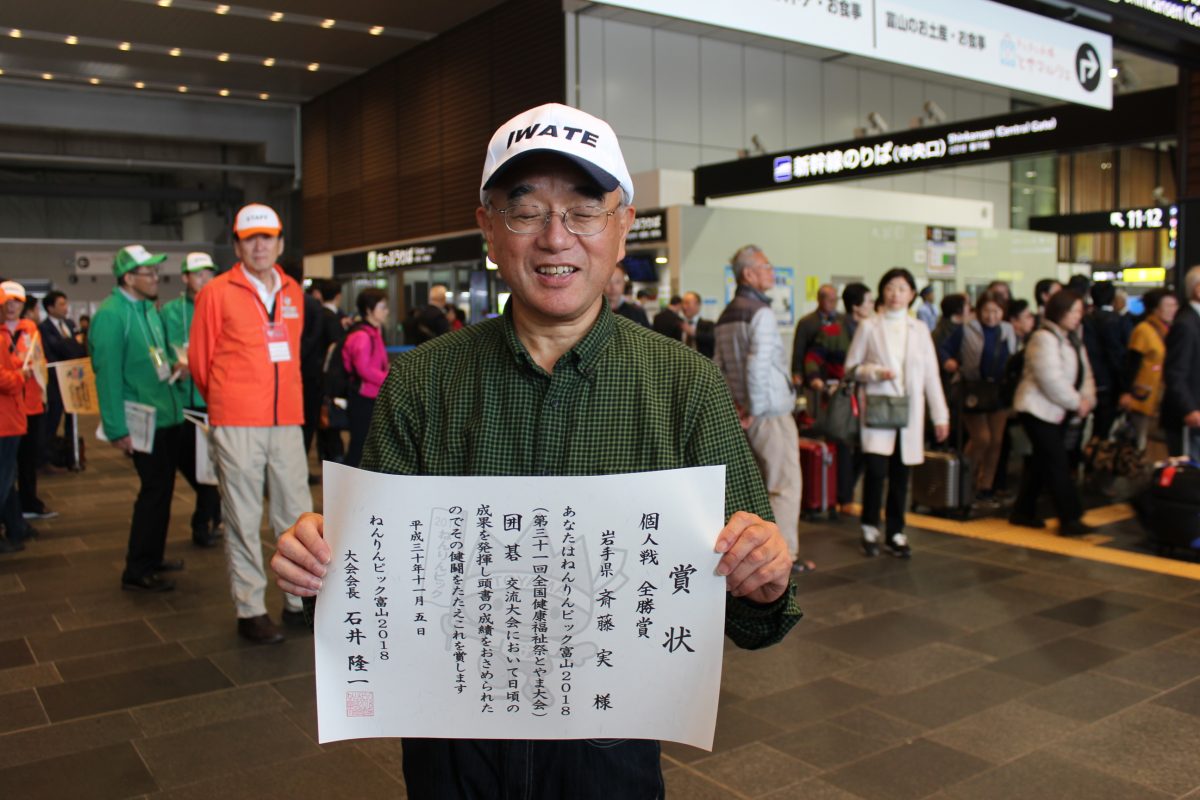 富山のお土産・お食事
新幹線のりば(中央口)
Shinkansen (Central Gate)
11・12
きっぷうりば
IWATE
STAFF
賞状
個人戦 全勝賞
岩手県 斉藤 実 様
あなたはねんりんピック富山2018
(第三十一回全国健康福祉祭とやま大会)
囲碁 交流大会において日頃の
成果を発揮し頭書の成績をおさめられた
のでその健闘をたたえこれを賞します
平成三十年十一月五日
ねんりんピック富山2018
大会会長 石井 隆一